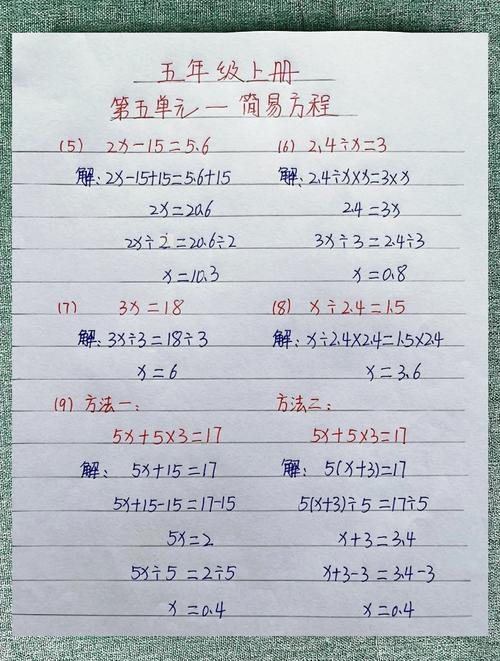 五年级上册
第五单元—简易方程
(5) 2x-15=5.6
解:2x-15+15=5.6+15
2x=20.6
2x÷2=20.6÷2
x=10.3
(6) 2.4÷x=3
解:2.4÷x×x=3×x
2.4=3x
3x÷3=2.4÷3
x=0.8
(7) 3x=18
解:3x÷3=18÷3
x=6
(8) x÷2.4=1.5
解:x÷2.4×2.4=1.5×2.4
x=3.6
(9) 方法一:
5x+5×3=17
解: 5x+15=17
5x+15-15=17-15
5x=2
5x÷5=2÷5
x=0.4
方法二:
5x+5×3=17
解: 5(x+3)=17
5(x+3)÷5=17÷5
x+3=3.4
x+3-3=3.4-3
x=0.4